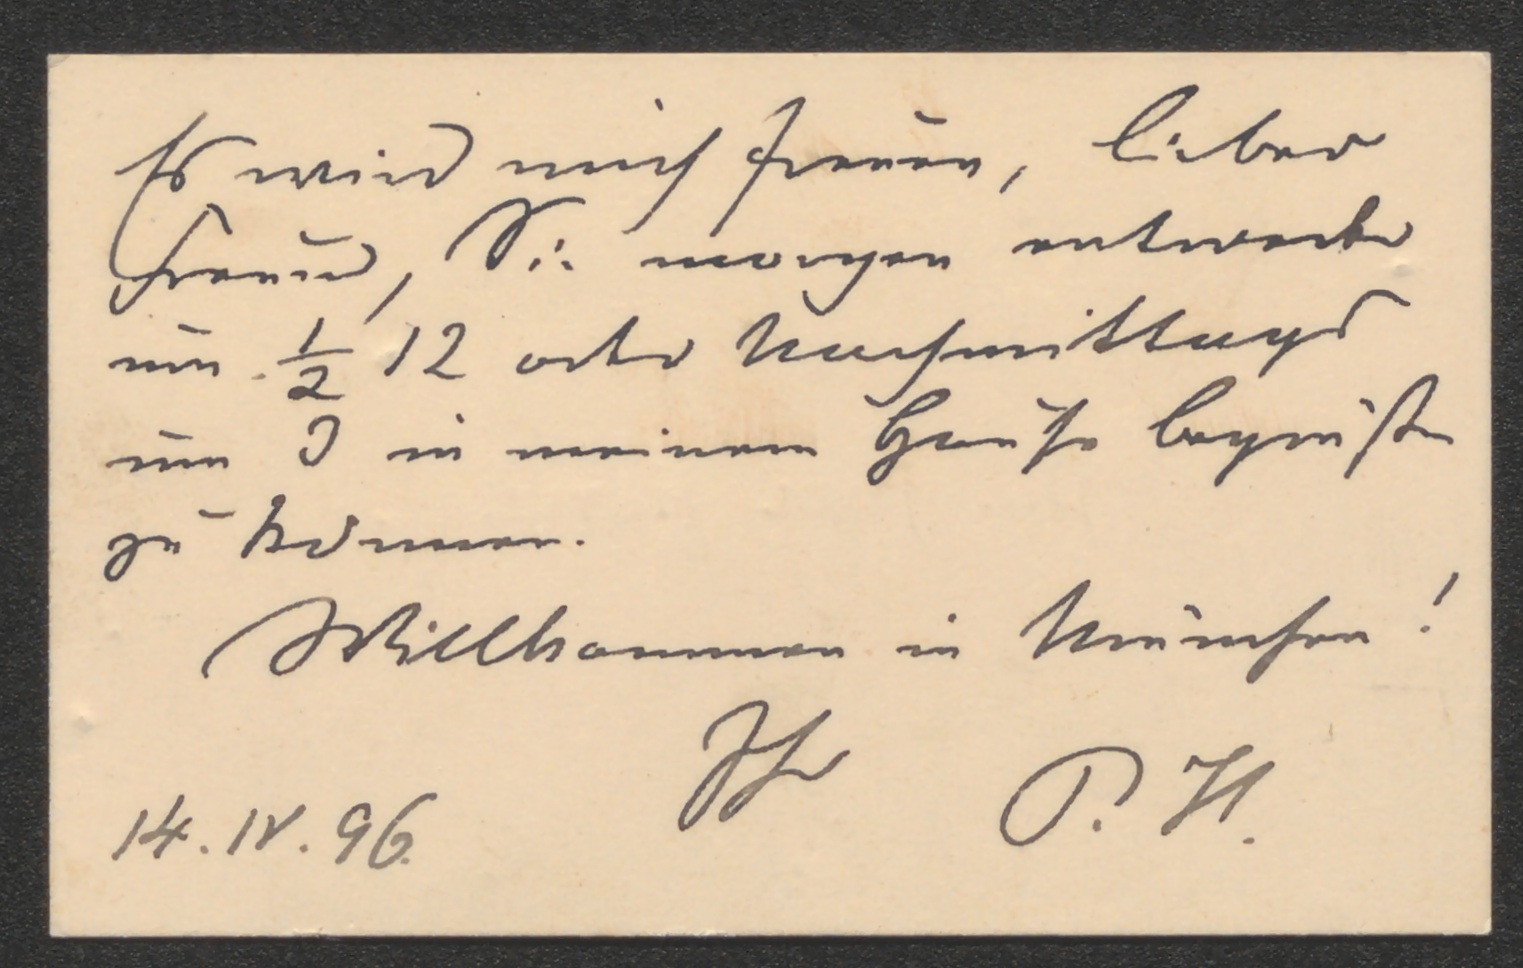 Es wird mich freuen, lieber
Freund, Sie morgen entweder
um ½ 12 oder Nachmittags
um 3 in meinem Hause begrüßen
zu können.
Willkommen in München!
Ihr P. H.
14. IV. 96.